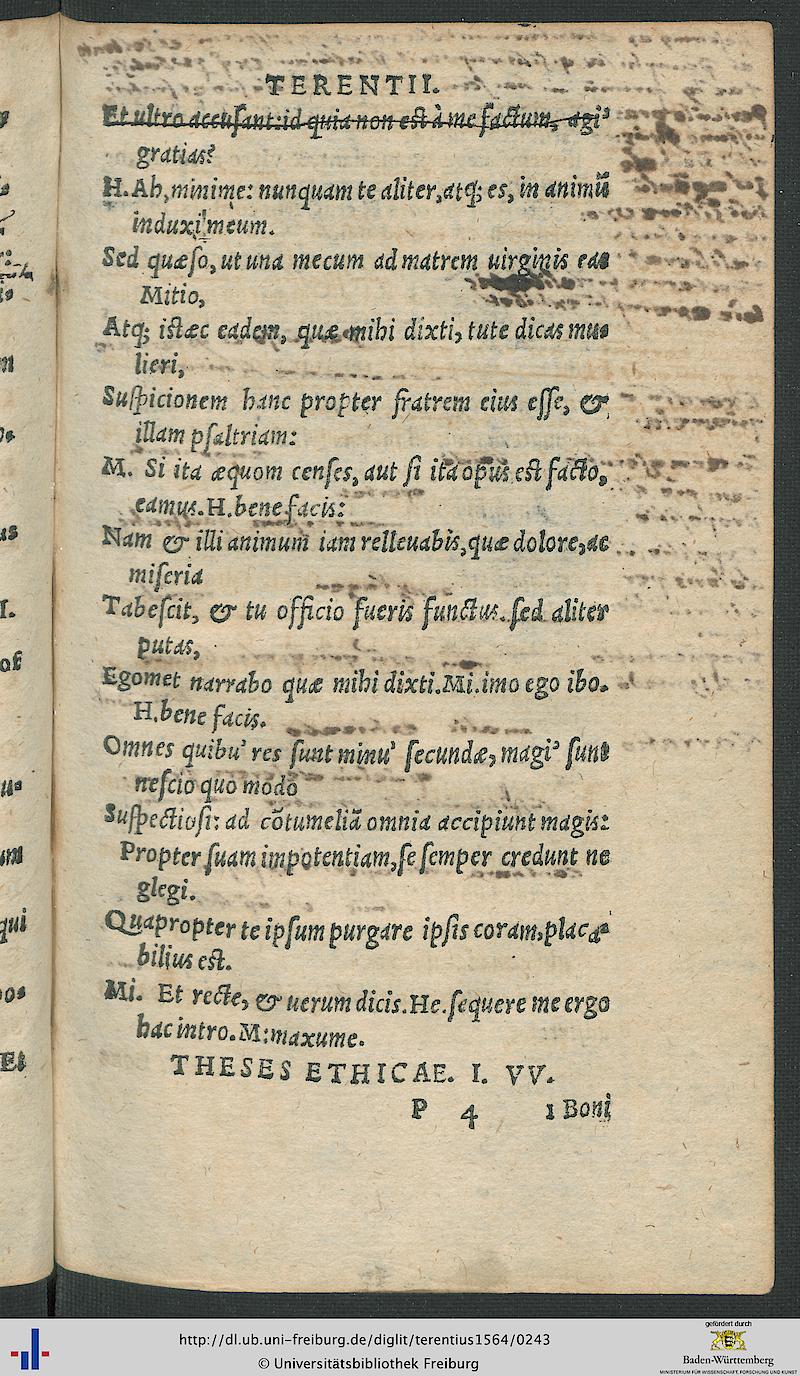 TERENTII.
Et ultro accuſant: id quia non eſt à me factum, agi'
gratias?
H. Ah, minime: nunquam te aliter, atq; es, in animū
induxi meum.
Sed quæſo, ut una mecum ad matrem uirginis eas
Mitio,
Atq; iſtæc eadem, quæ mihi dixti, tute dicas mu-
lieri,
Suſpicionem hanc propter fratrem eius eſſe, &
illam pſaltriam:
M. Si ita æquom cenſes, aut ſi ita opus eſt facto,
eamus. H. bene facis:
Nam & illi animum iam relleuabis, quæ dolore, ac
miſeria
Tabeſcit, & tu officio fueris functus. ſed aliter
putas,
Egomet narrabo quæ mihi dixti. Mi. imo ego ibo.
H. bene facis.
Omnes quibu' res ſunt minu' ſecundæ, magi' ſunt
neſcio quo modo
Suſpectioſi: ad cōtumeliā omnia accipiunt magis:
Propter ſuam impotentiam, ſe ſemper credunt ne
glegi.
Quapropter te ipſum purgare ipſis coram, placa-
bilius eſt.
Mi. Et recte, & uerum dicis. He. ſequere me ergo
hac intro. M: maxume.
THESES ETHICAE. I. VV.
P 4 1 Boni
http://dl.ub.uni-freiburg.de/diglit/terentius1564/0243
© Universitätsbibliothek Freiburg
gefördert durch
Baden-Württemberg
MINISTERIUM FÜR WISSENSCHAFT, FORSCHUNG UND KUNST